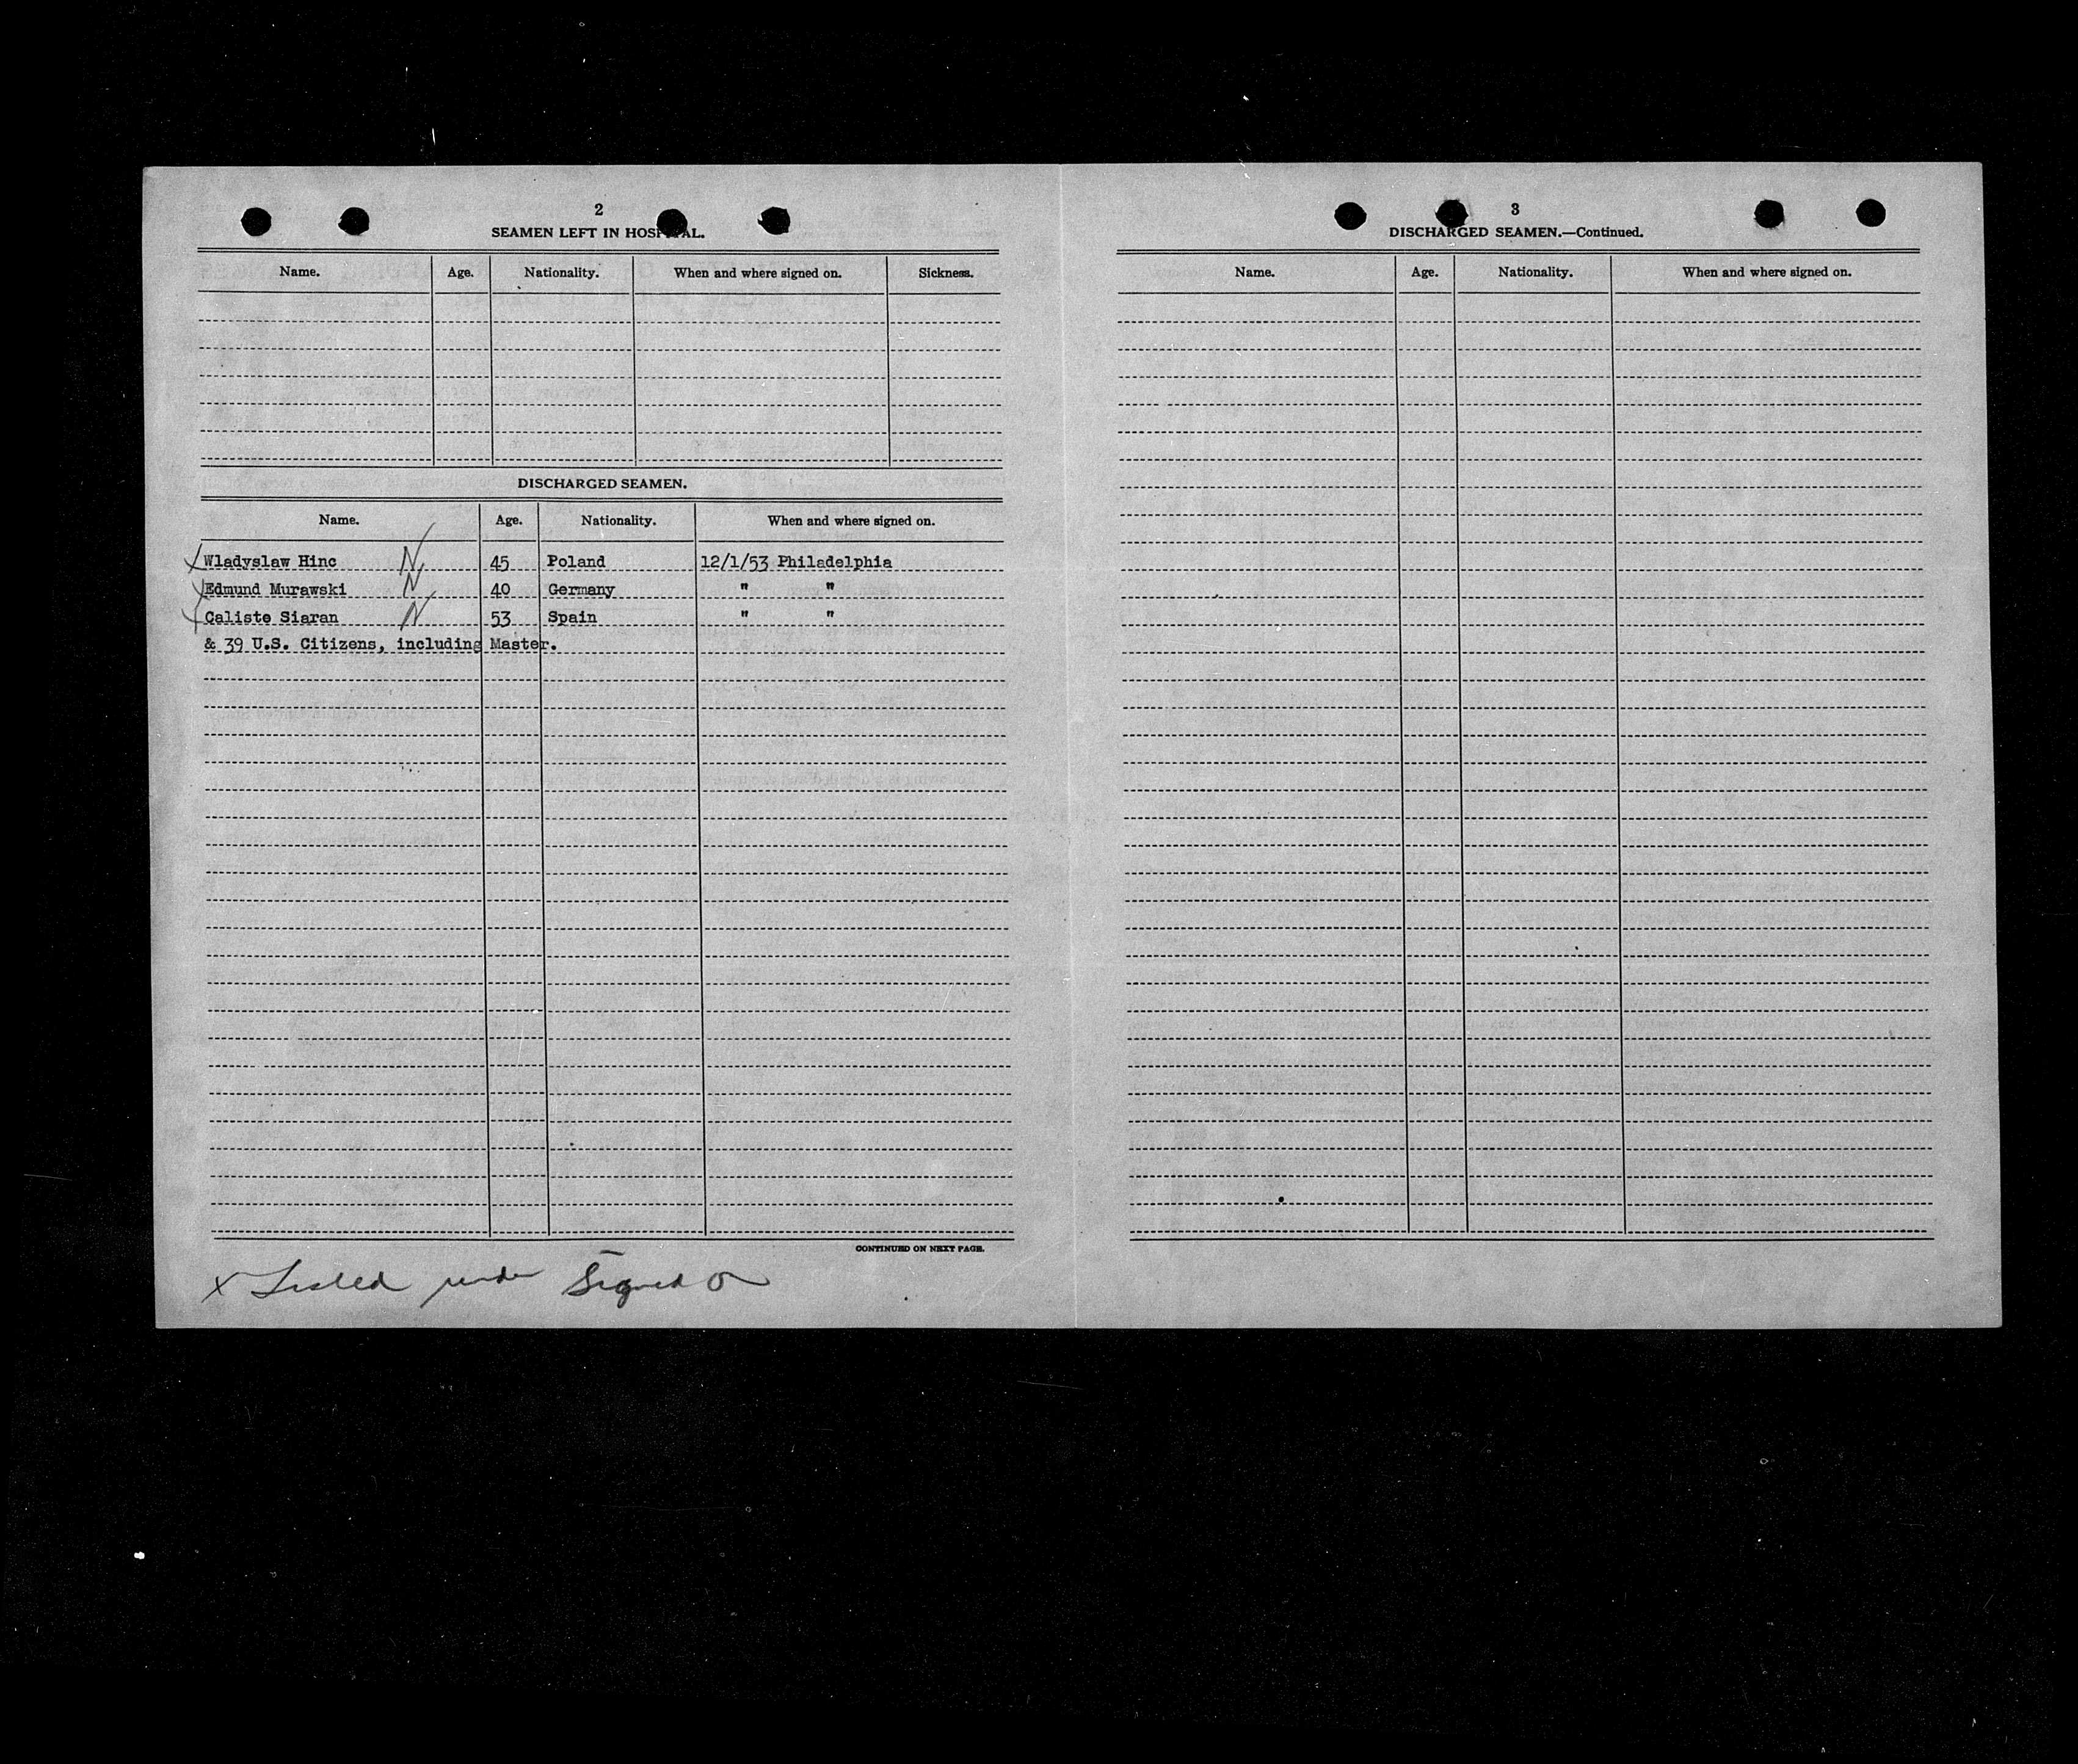 2
SEAMEN LEFT IN HOSPITAL.
Name. Age. Nationality. When and where signed on. Sickness.
DISCHARGED SEAMEN.
Name. Age. Nationality. When and where signed on.
Wladyslaw Hinc N 45 Poland 12/1/53 Philadelphia
Edmund Murawski N 40 Germany " "
Calisto Siaran N 53 Spain " "
& 39 U.S. Citizens, including Master.
CONTINUED ON NEXT PAGE.
x Listed under Signed on
3
DISCHARGED SEAMEN.—Continued.
Name. Age. Nationality. When and where signed on.